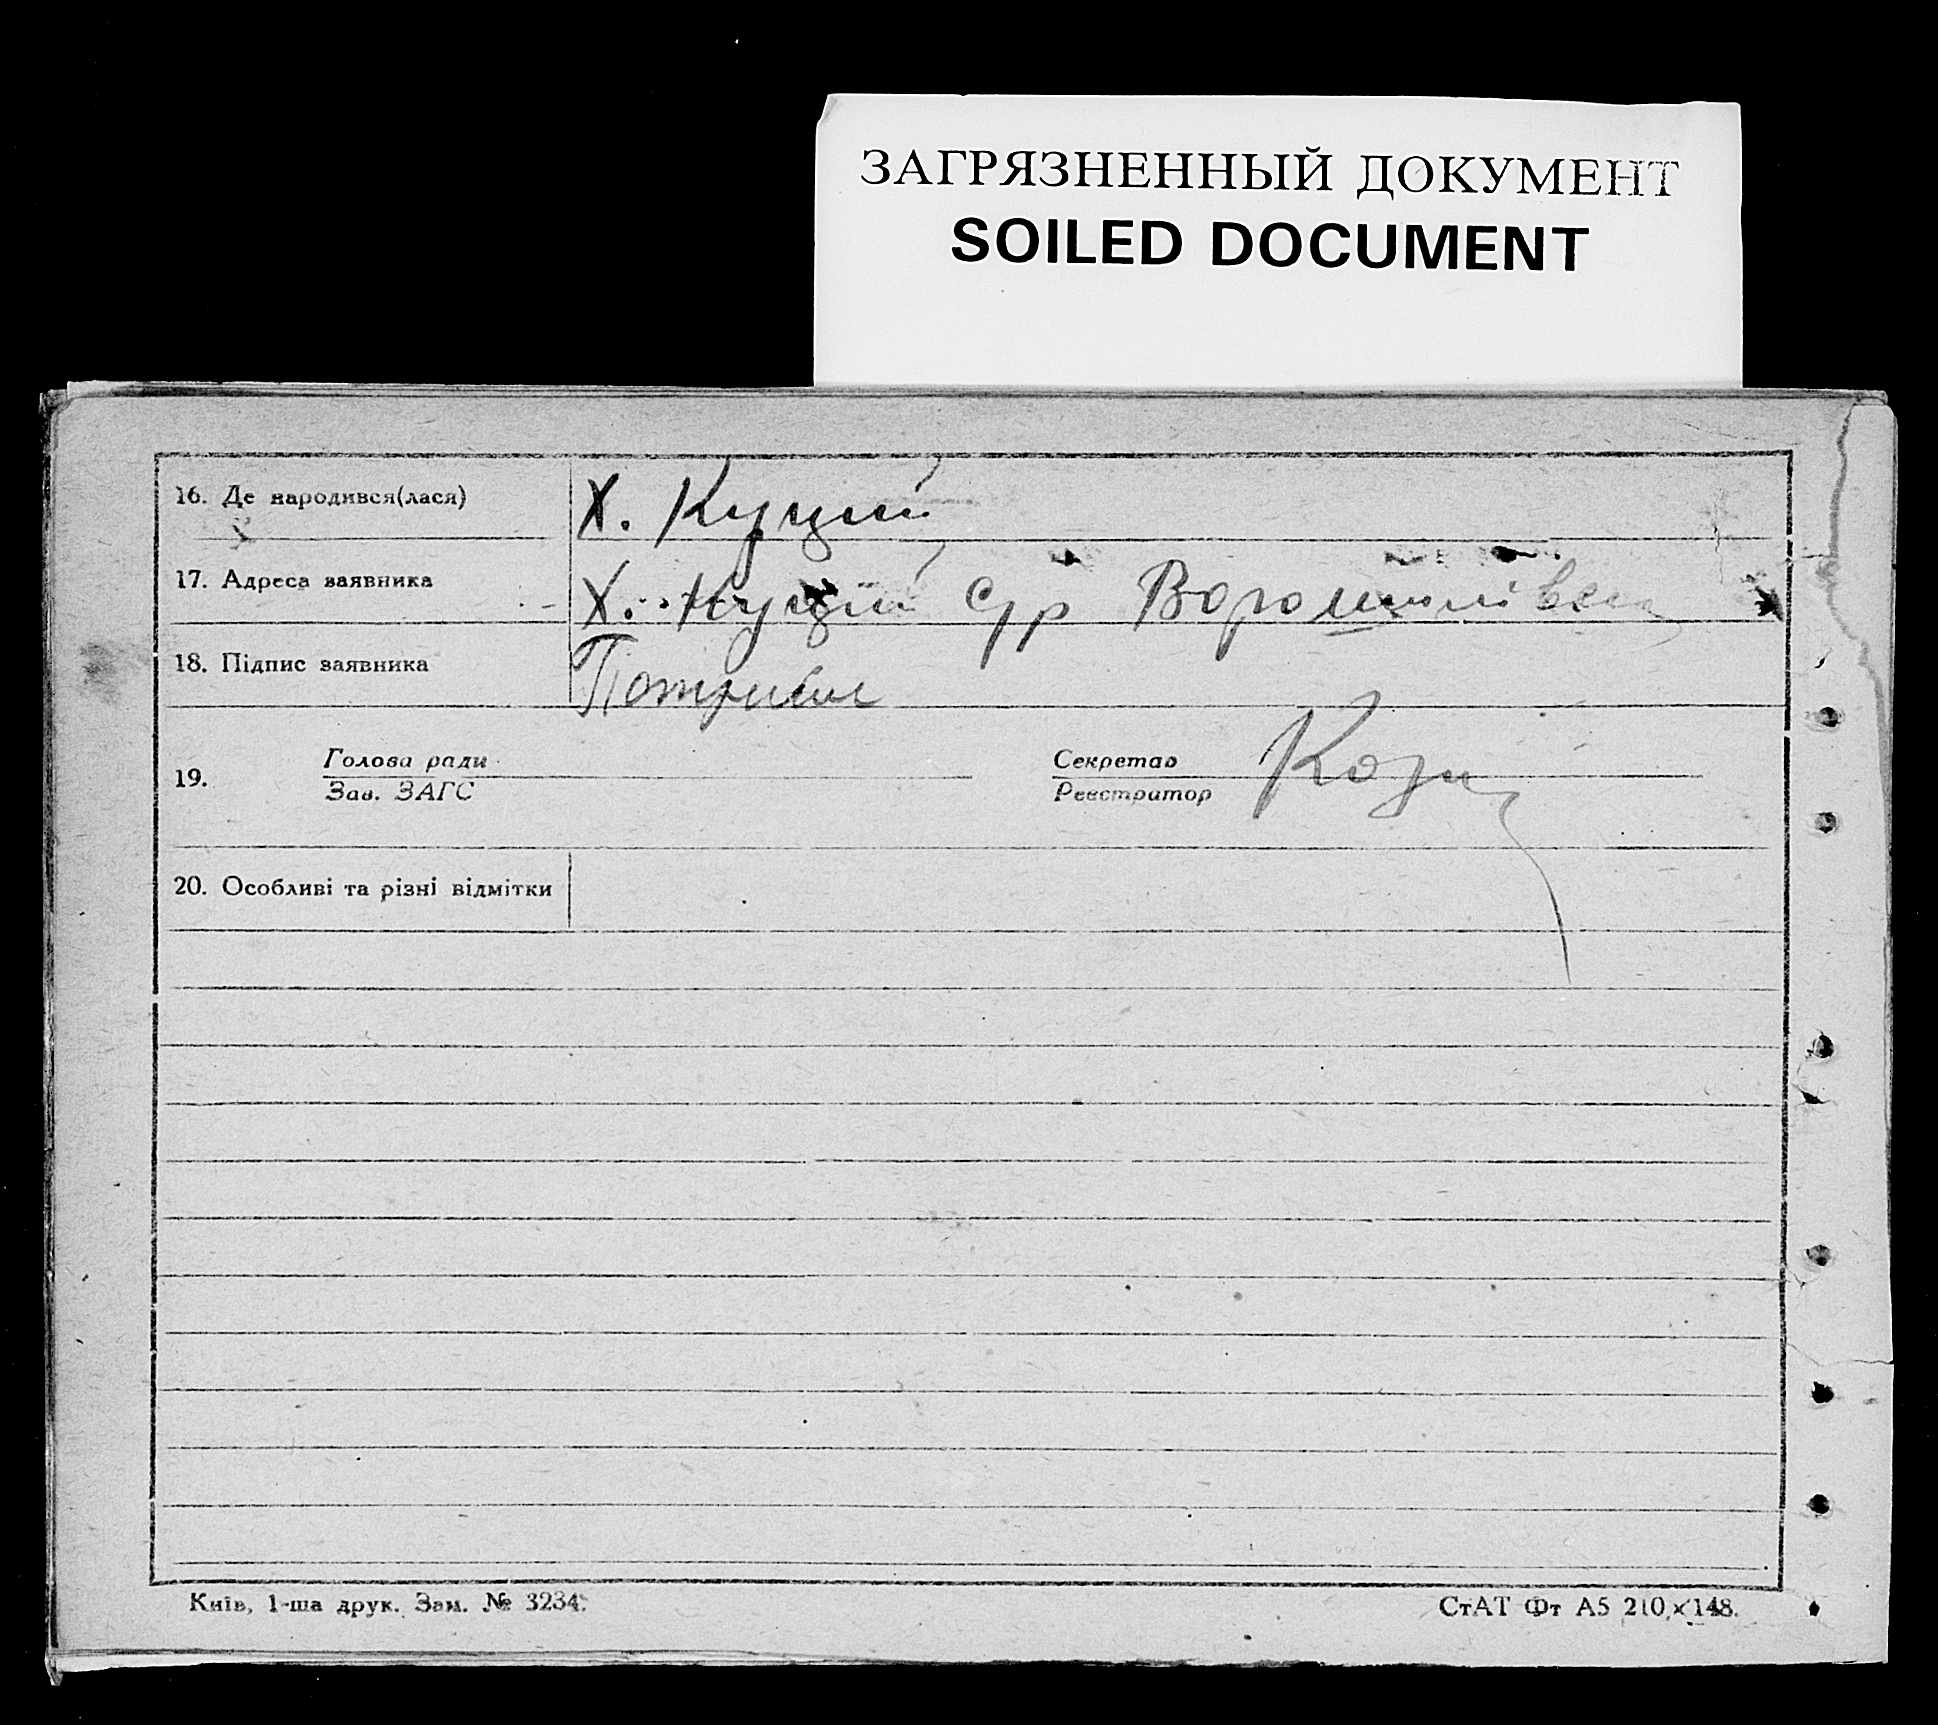 ЗАГРЯЗНЕННЫЙ ДОКУМЕНТ
SOILED DOCUMENT
16. Де народився(лася)
Х. Куций
17. Адреса заявника
Х. Куций с/р
18. Підпис заявника
19.
Голова ради
Зав. ЗАГС
Секретар
Реєстратор
20. Особливі та різні відмітки
Київ, 1-ша друк. Зам. № 3234.
СтАТ Фт А5 210×148.